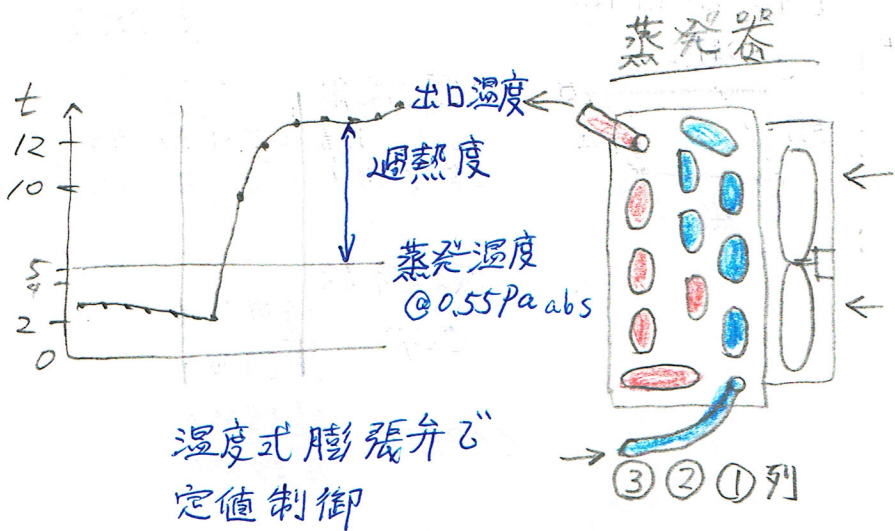 蒸発器
t
12
10
5
4
2
0
出口温度
過熱度
蒸発温度
@0.55Pa abs
温度式膨張弁で
定値制御
③ ② ① 列